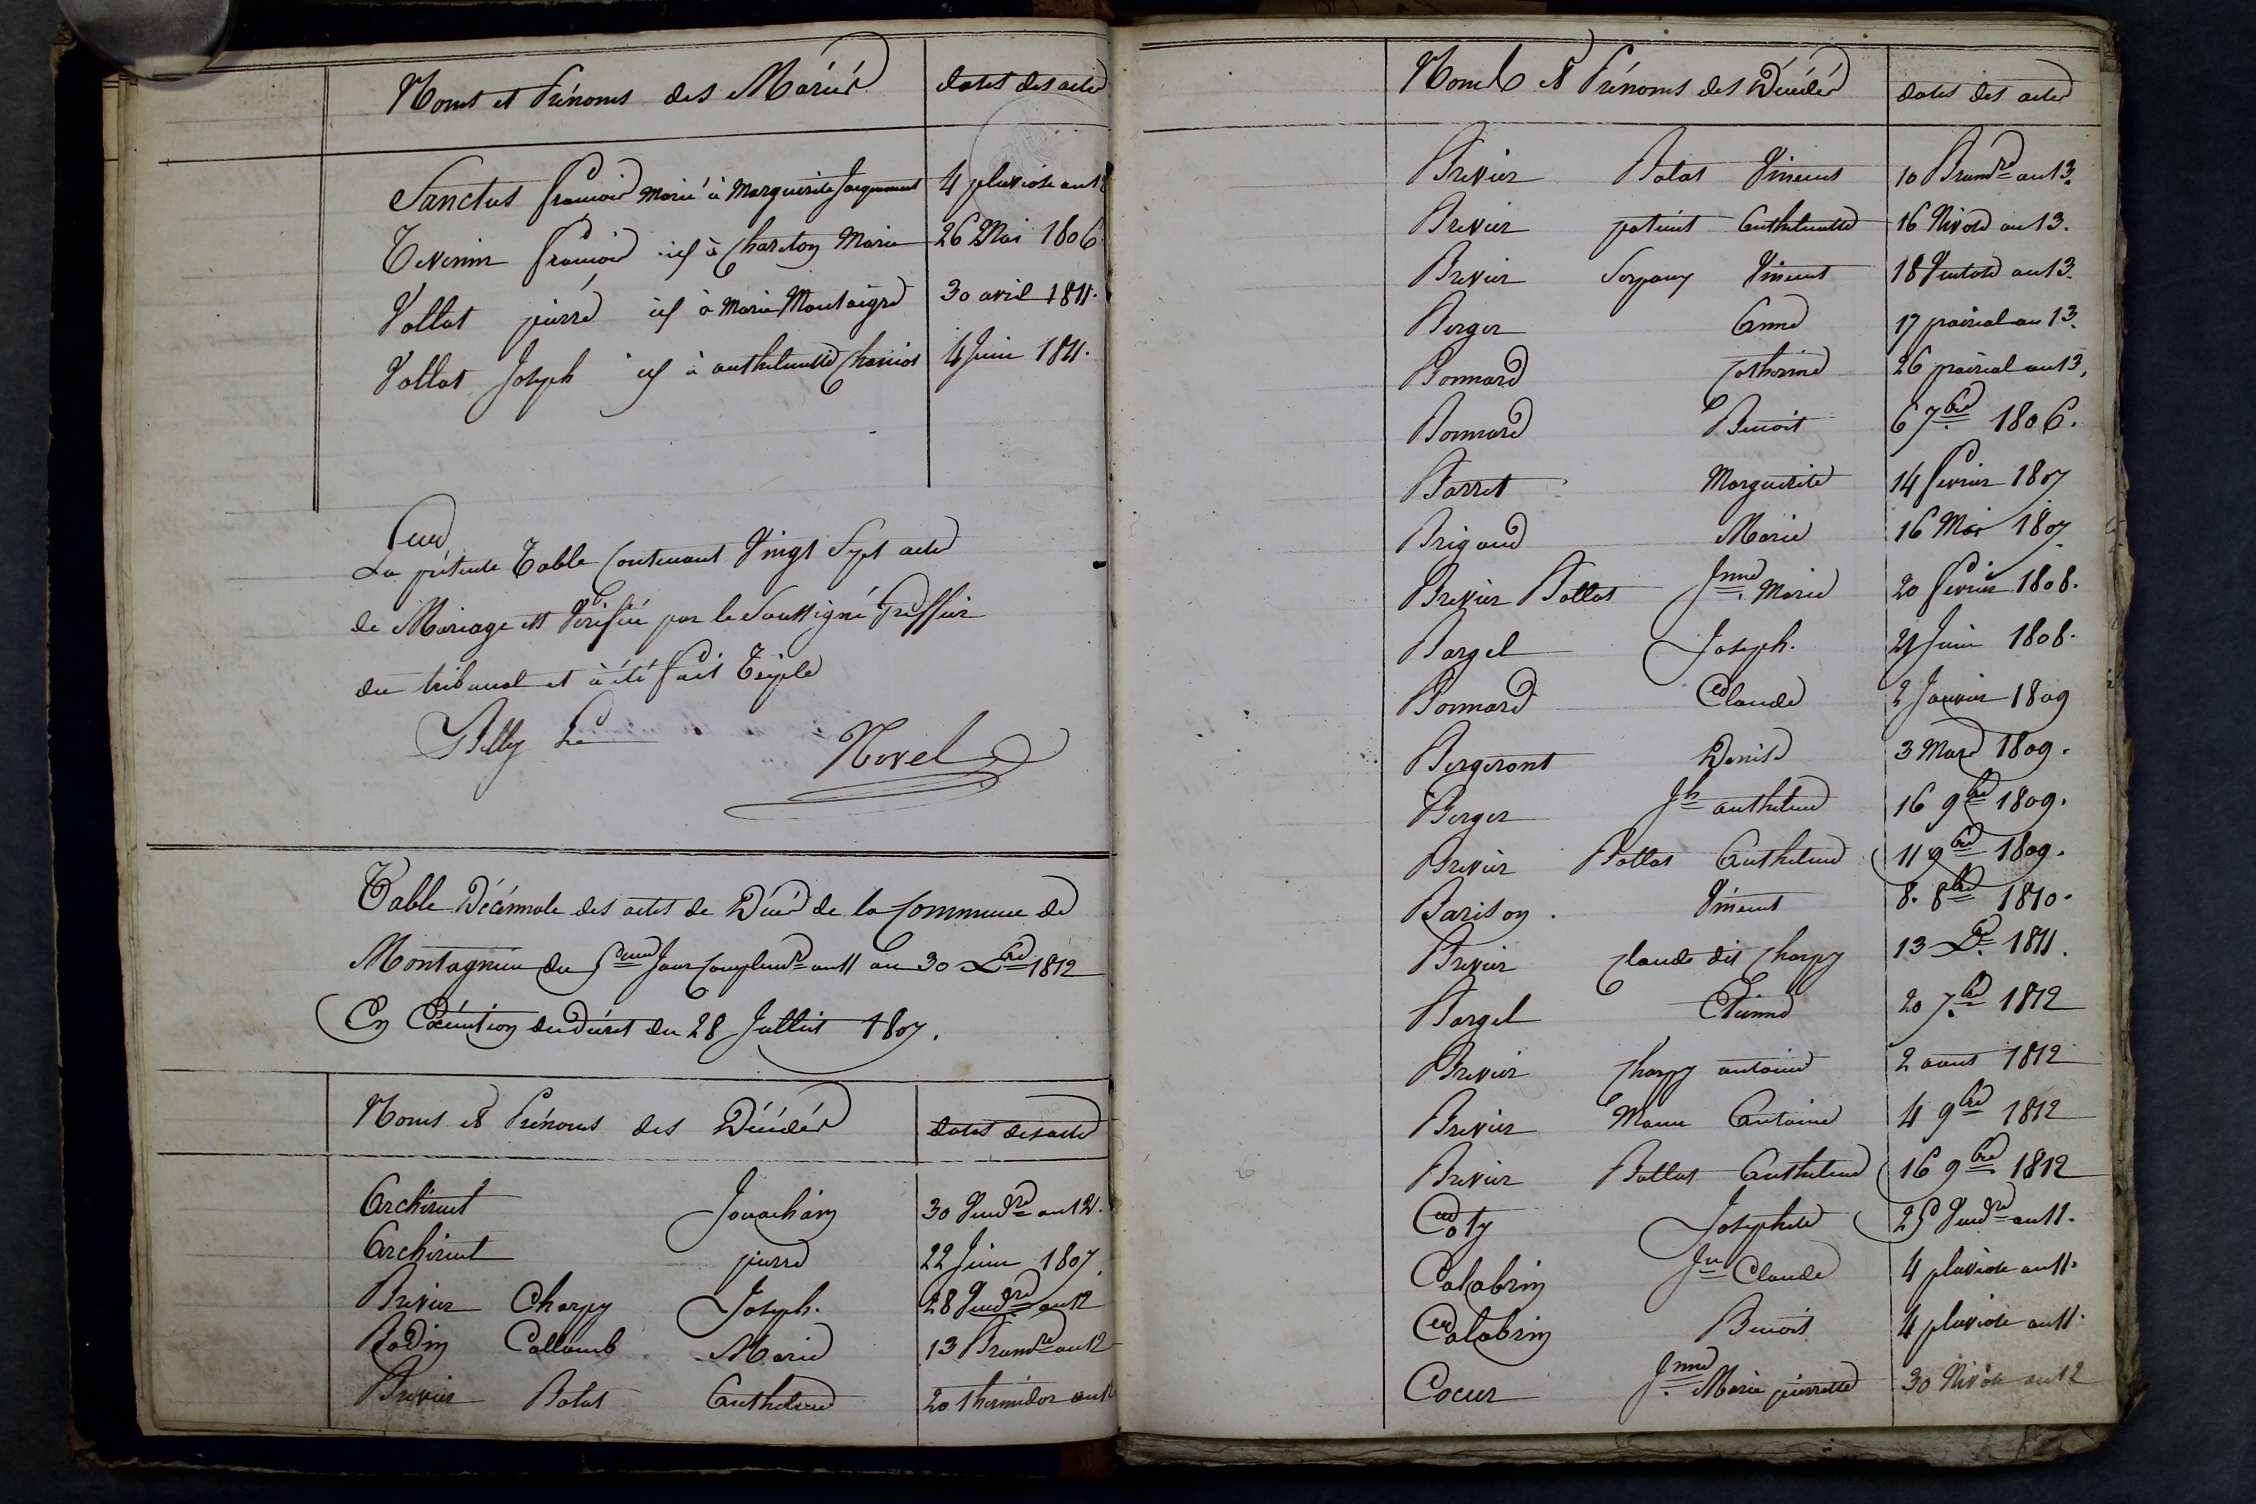 Noms et Prénoms des Mariés dates des actes
Sanctus francois marié à Marguerite Jacquemet 4 pluviose an 12
Tevenin francois id à Chareton Marie 26 Mai 1806.
Vollat pierre id à Marie Montaigre 30 avril 1811.
Vollat Joseph id à anthelmette Charriot 4 Juin 1811.
La présente Table Contenant Vingt Sept actes
de Mariage est Vérifiée par le Soussigné Greffier
du tribunal et à été fait Triple
Novel
Table Décénnale des actes de Décès de la Commune de
Montagnieu du jour complemre an 11 au 30 Xbre 1812
En Exécution du décret du 28 Juillet 1807.
Noms et Prénoms des Décédés dates des actes
Archirent Jouachain 30 Vendre an 12.
Archirent pierre 22 Juin 1807
Brevier Charpy Joseph. 28 Vendre an 12
Bodin Collomb Marie 13 Brumre an 12
Brevier Bolat Anthelme 20 thermidor an 12
Noms et Prénoms des Décédés dates des actes
Brevier Bolat Vincent 10 Brumre an 13.
Brevier patient Anthelmette 16 Nivose an 13.
Brevier Vincent 18 Ventose an 13.
Berger Anne 17 prairial an 13.
Bonnard Catherine 26 prairial an 13,
Bonnard Benoit 6 7bre 1806.
Barret Marguerite 14 fevrier 1807
Brigand Marie 16 Mai 1807
Brevier Bollat Jnne Marie 20 fevrier 1808.
Bargel Joseph. 21 Juin 1808.
Bonnard Claude 2 Janvier 1809
Bergeront Denise 3 Mars 1809.
Berger Jh anthelme 16 9bre 1809.
Brevier Bollat Anthelme 11 9bre 1809.
Barison. Vincent 8. 8bre 1810.
Brevier Claude dit Charpy 13 Xbre 1811.
Bargel Etienne 20 7bre 1812
Brevier Charpy antoine 2 aout 1812
Brevier Manu Antoine 4 9bre 1812
Brevier Bollat Anthelme 16 9bre 1812
Coty Josephte 25 Vendre an 11.
Calabrin Jn Claude 4 pluviose an 11.
Calabrin Benoit 4 pluviose an 11.
Coeur Jnne Marie pierrette 30 Nivose an 12